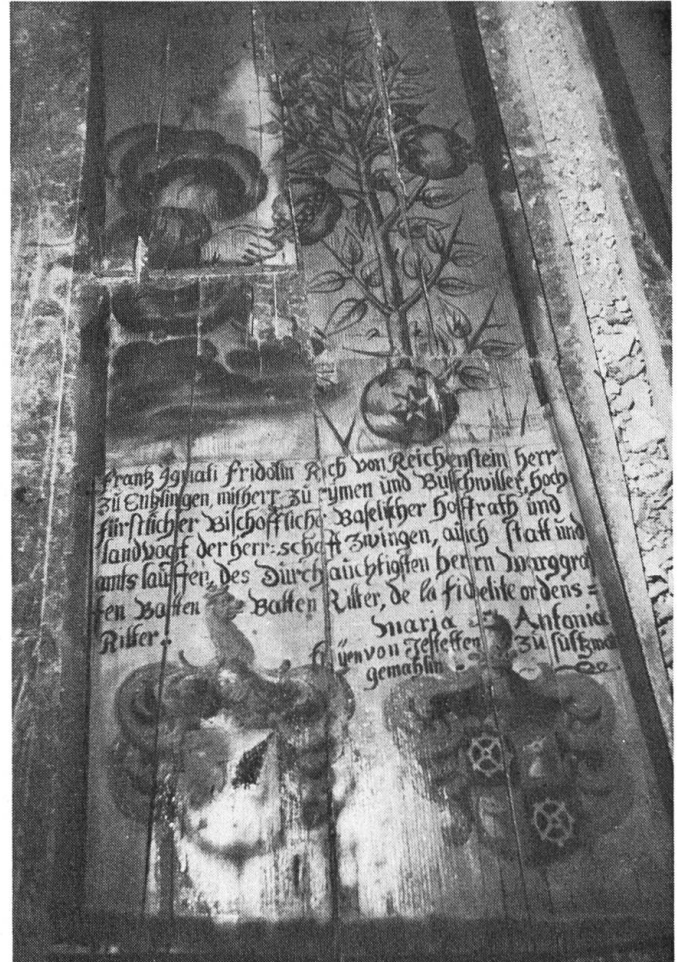 Frantz Ignati Fridolin Rich von Reichenstein herr
zů mitherr zů rymen und Buschwiller, hoch
fürstlicher Bischöffliche Baselischer hoffrath und
landvogt der herr=schaft Zwingen, auch statt und
amts lauffen, des Durchlauchtigsten herrn Marggra
fen Baden Ritter, de la fidelite ordens=
Ritter.
Maria Antonia
von zů
gemahlin